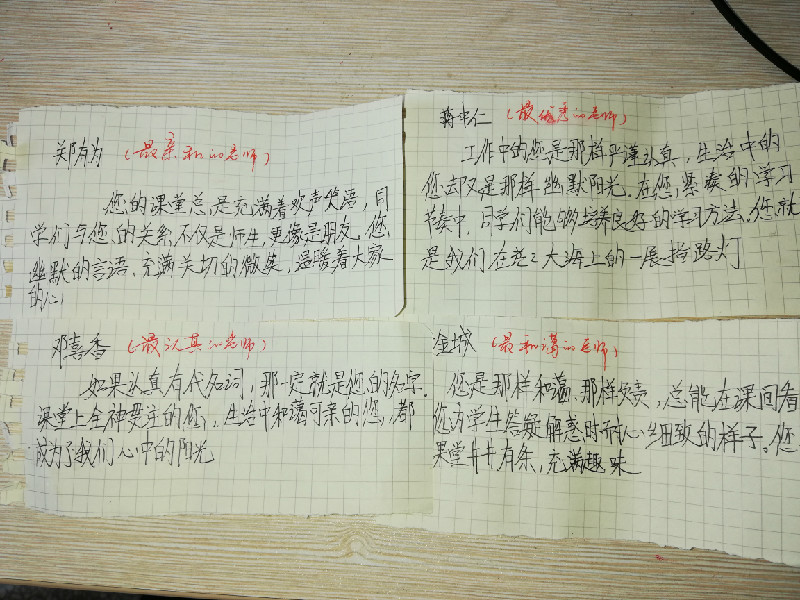 郑有为 (最亲和的老师)
您的课堂总是充满着欢声笑语,同
学们与您的关系不仅是师生,更像是朋友。您
幽默的言语,充满关切的微笑,温暖着大家
的心。
蒋忠仁 (最优秀的老师)
工作中的您是那样严谨认真,生活中的
您却又是那样幽默阳光。在您紧凑的学习
节奏中,同学们能够培养良好的学习方法。您就
是我们在茫茫大海上的一展指路灯
邓喜香 (最认真的老师)
如果认真有代名词,那一定就是您的名字。
课堂上全神贯注的您,生活中和蔼可亲的您,都
成为了我们心中的阳光
金城 (最和蔼的老师)
您是那样和蔼,那样负责,总能在课间看
您为学生答疑解惑时耐心细致的样子。您
课堂井井有条,充满趣味